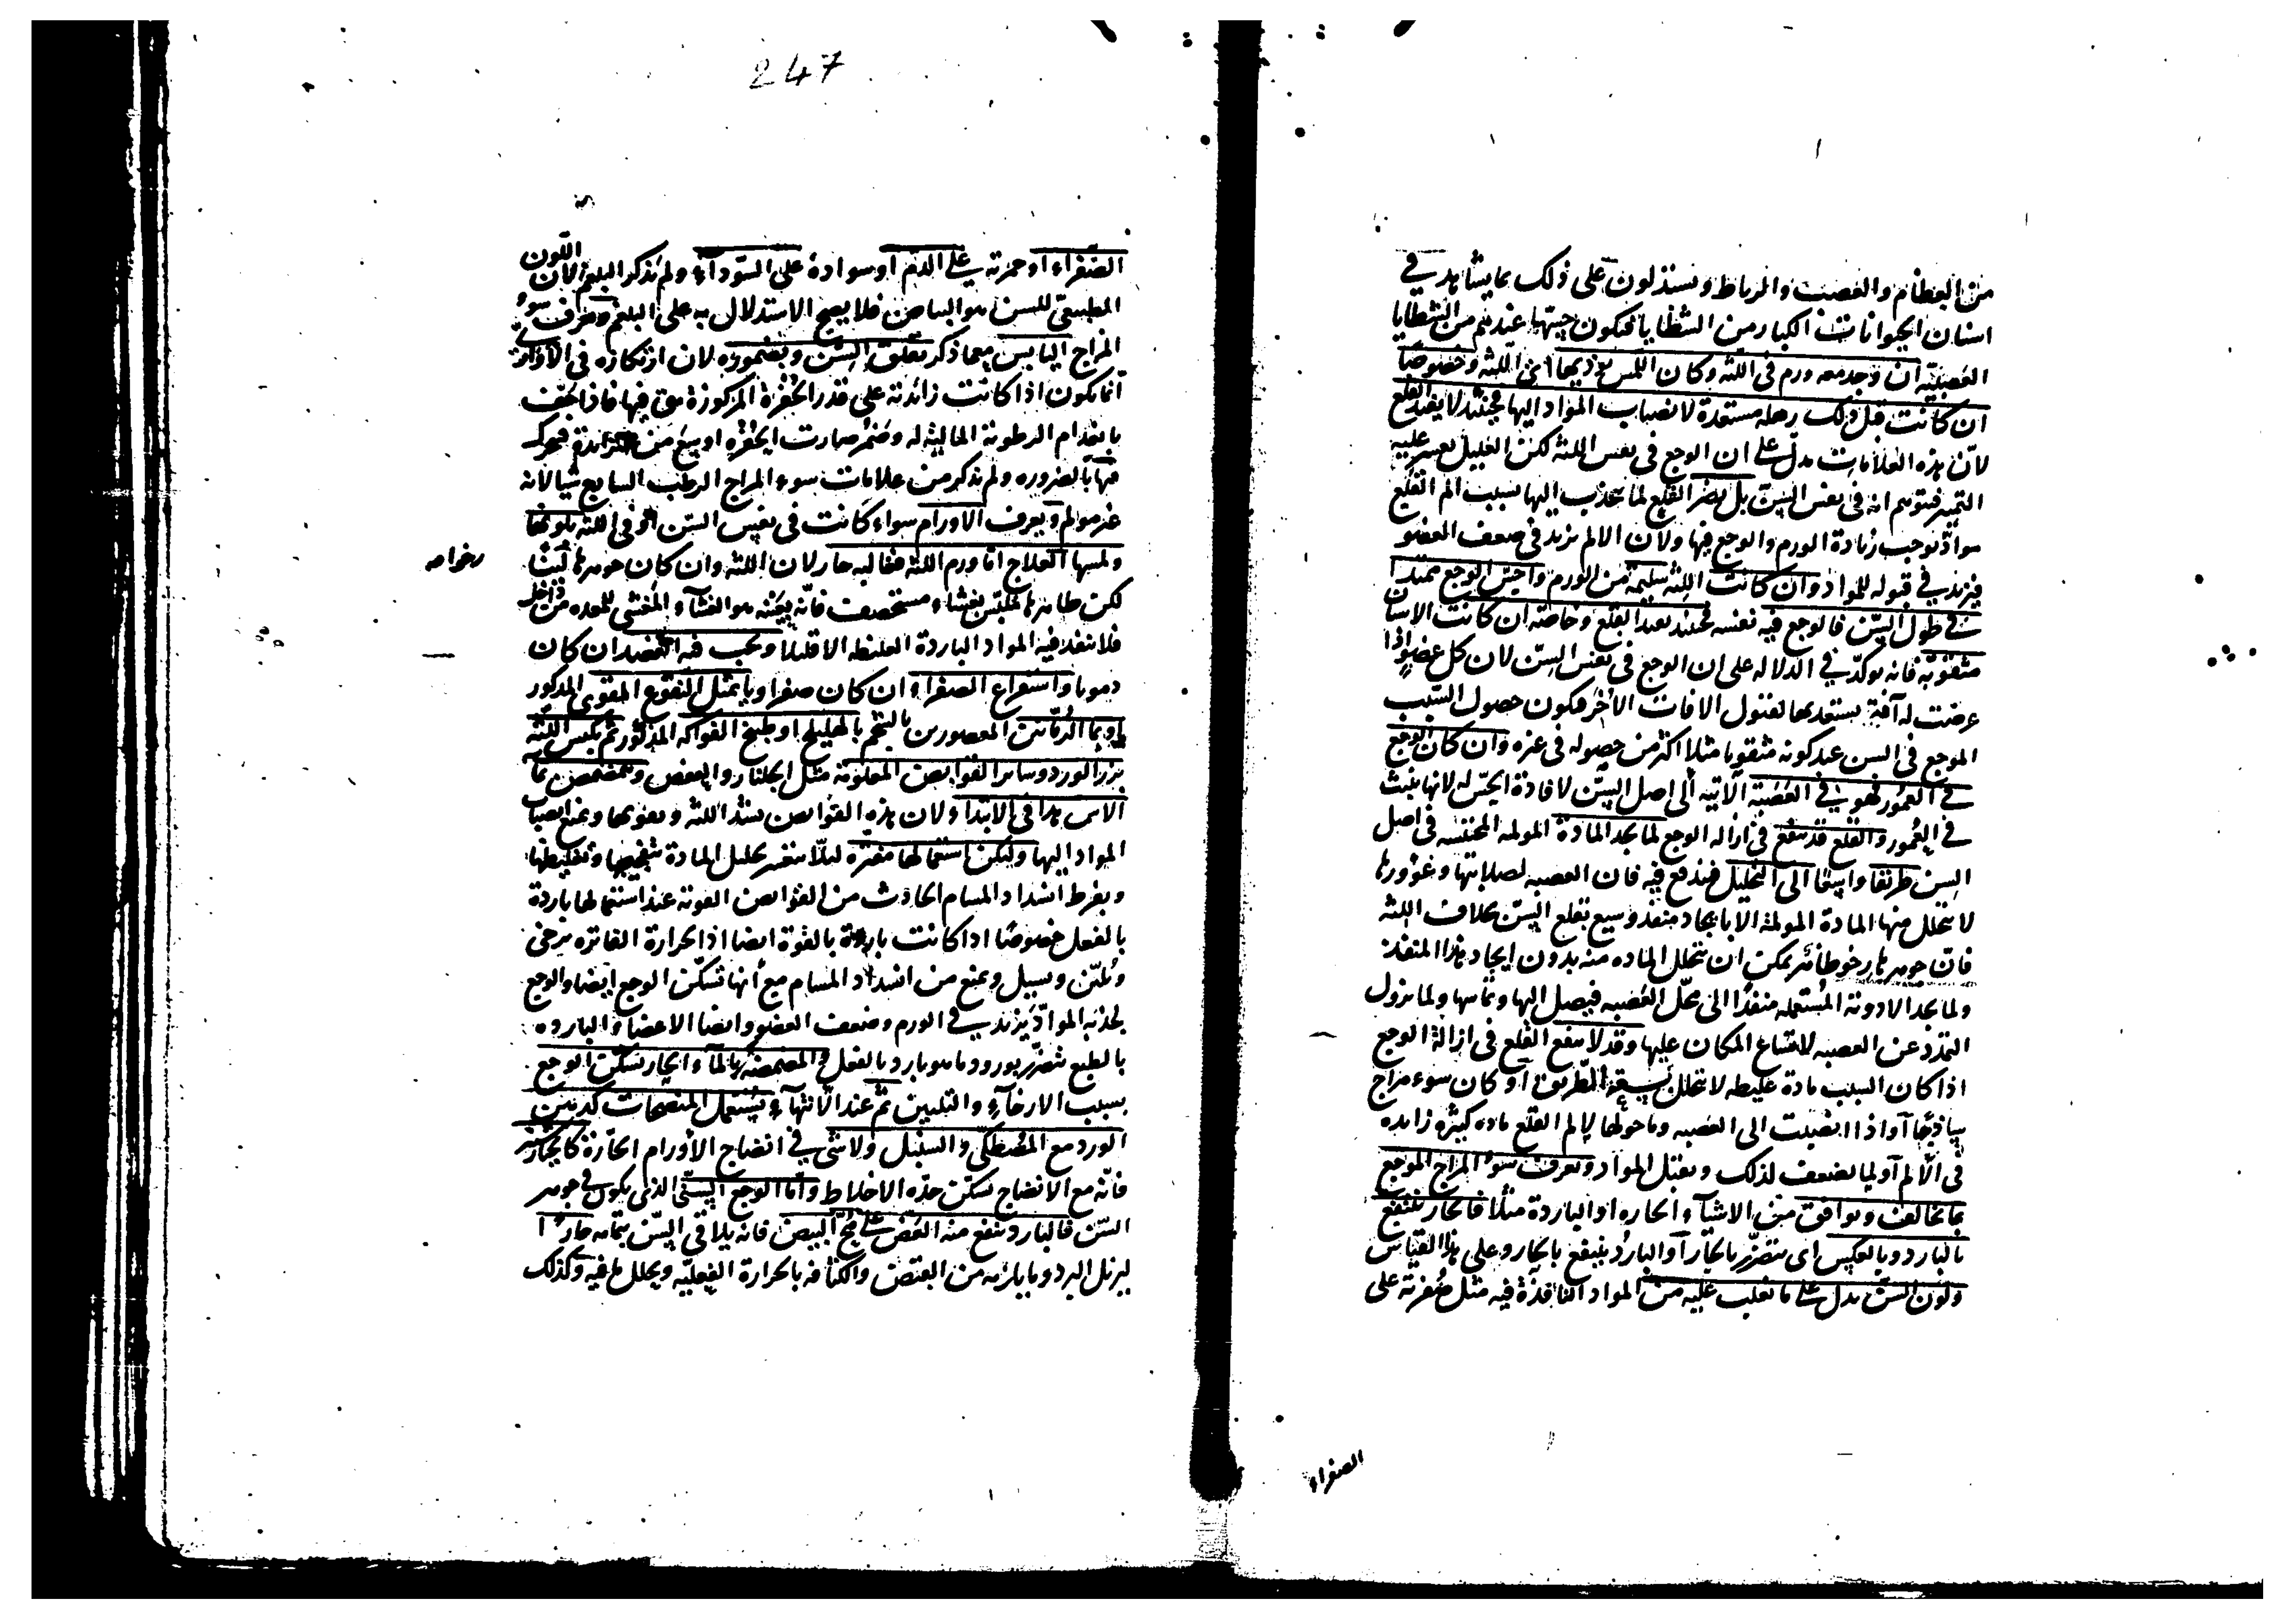 من العظام والعصب والرباط ويستدلون على ذلك بما يشاهد في
اسنان الحيوانات الكبار من الشظايا فيكون حسها عندهم من الشظايا
العصبية ان وجد معه ورم في اللثة وكان اللمس يوذيها اى اللثة وخصوصا
ان كانت قبل ذلك رهلة مستعدة لانصباب المواد اليها فحينئذ لا يفيد القلع
لان هذه العلامات تدل على ان الوجع في نفس اللثة لكن العليل يعسر عليه
التميز فيتوهم انه في نفس السن بل يضر القلع لما ينجذب اليها بسبب الم القلع
مواد توجب زيادة الورم والوجع فيها ولان الالم يزيد في ضعف العضو
فيزيد في قبوله للمواد وان كانت اللثة سليمة من الورم واحس الوجع ممتدا
في طول السن فالوجع فيه نفسه فحينئذ يفيد القلع وخاصة ان كانت الاسنان
مثقوبة فانه يؤكد في الدلالة على ان الوجع في نفس السن لان كل عضو اذا
عرضت له آفة يستعد بها لقبول الافات الاخر فيكون حصول السبب
الموجع في السن عند كونه مثقوبا مثلا اكثر من حصوله في غيره وان كان الوجع
في العمور فهو في العصبة الآتية الى اصل السن لافادة الحس له لانها تنبث
في العمور والقلع قد ينفع في ازالة الوجع لما يجد المادة المولمة المحتبسة في اصل
السن طريقا واسعا الى التحليل فيندفع فيه فان العصبة لصلابتها وغورها
لا تتحلل منها المادة المولمة الا بايجاد منفذ وسيع بقلع السن بخلاف اللثة
فان جوهرها رخو ظاهر يمكن ان تتحلل المادة منه بدون ايجاد هذا المنفذ
ولما يجد الادوية المستعملة منفذا الى محل العصبة فيصل اليها وتماسها ولما يزول
التمدد عن العصبة لاتساع المكان عليها وقد لا ينفع القلع في ازالة الوجع
اذا كان السبب مادة غليظة لا تتحلل بسعة الطريق او كان سوء مزاج
ساذجا او اذا انصبت الى العصبة وما حولها لالم القلع مادة كثيرة زايدة
في الالم او لما يضعف لذلك ويقبل المواد ويعرف سوء المزاج الموجع
بما يخالف ويوافق من الاشياء الحارة او الباردة مثلا فالحار ينتفع
بالبارد وبالعكس اى يتضرر بالحار والبارد ينتفع بالحار وعلى هذا القياس
ولون السن يدل على ما تغلب عليه من المواد النافذة فيه مثل صفرته على
الصفراء
247
الصفراء او حمرته على الدم او سواده على السوداء ولم يذكر البلغم لان اللون
الطبيعي للسن هو البياض فلا يصح الاستدلال به على البلغم ويعرف سوء
المزاج اليابس مما ذكر بقلق السن وبضموره لان ارتكازه في
انما يكون اذا كانت زائدته على قدر الحفرة المركوزة هي فيها فاذا جف
بانعدام الرطوبة المالية له وضمر صارت الحفرة اوسع من الزائدة فيتحرك
فيها بالضرورة ولم يذكر من علامات سوء المزاج الرطب الساذج شيا لانه
غير مولم ويعرف الاورام سواء كانت في نفس السن او في اللثة بلونها
ولمسها العلاج اما ورم اللثة فغالبه حار لان اللثة وان كان جوهرها لينا
رخوا صح
لكن ظاهرها ملتبس بغشاء مستحصف فانه بعينه هو الغشاء المغشي للمعدة من داخل
فلا تنفذ فيه المواد الباردة الغليظة الا قليلا ويجب فيه الفصد ان كان
دمويا واستفراغ الصفراء ان كان صفراويا بمثل النقوع المقوى المذكور
او بماء الرمانين المعصورين بالشحم بالهليلج او طبيخ الفواكه المذكور ثم يكبس اللثة
ببزر الورد وساير القوابض المعلومة مثل الجلنار والعفص ويتمضمض بماء
الاس هذا في الابتداء لان هذه القوابض تشد اللثة وتقويها وتمنع انصباب
المواد اليها وليكن استعمالها مفترة لئلا يتعسر تحليل المادة بتفجيجها وتغليظها
وبفرط انسداد المسام الحادث من القوابض القوية عند استعمالها باردة
بالفعل خصوصا اذا كانت باردة بالقوة ايضا اذ الحرارة الفاترة ترخى
وتلين وتسيل وتمنع من انسداد المسام مع انها تسكن الوجع ايضا والوجع
بجذبه المواد يزيد في الورم وضعف العضو وايضا الاعضاء الباردة
بالطبع تتضرر بورود ما هو بارد بالفعل والمضمضة بالماء الحار تسكن الوجع
بسبب الارخاء والتليين ثم عند الانتهاء يستعمل المنضجات كدهن
الورد مع المصطكى والسنبل ولا شى في انضاج الاورام الحارة كالخيار شنبر
فانه مع الانضاج يسكن حدة الاخلاط واما الوجع السنى الذى يكون في جوهر
السن فالبارد ينفع منه العض على مح البيض فانه يلاقي السن بتمامه حارا
ليزيل البرد وما يلزمه من القبض والكثافة بالحرارة الفعلية ويحلل ما فيه وكذلك